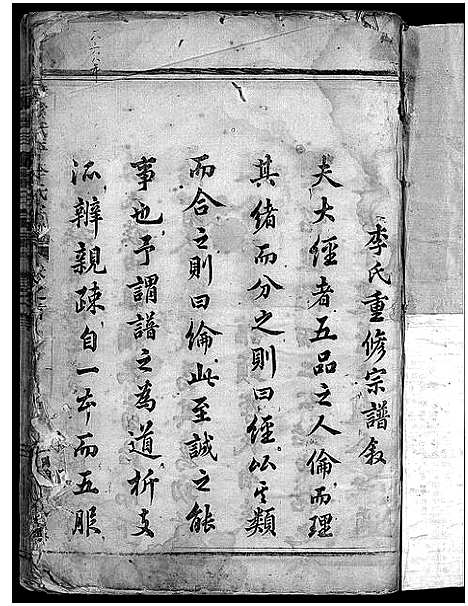 李氏重修宗譜叙
夫大經者五品之人倫而理
其緒而分之則曰經比其類
而合之則曰綸此至誠之能
事也予謂譜之為道析支
派辨親疎自一本而五服